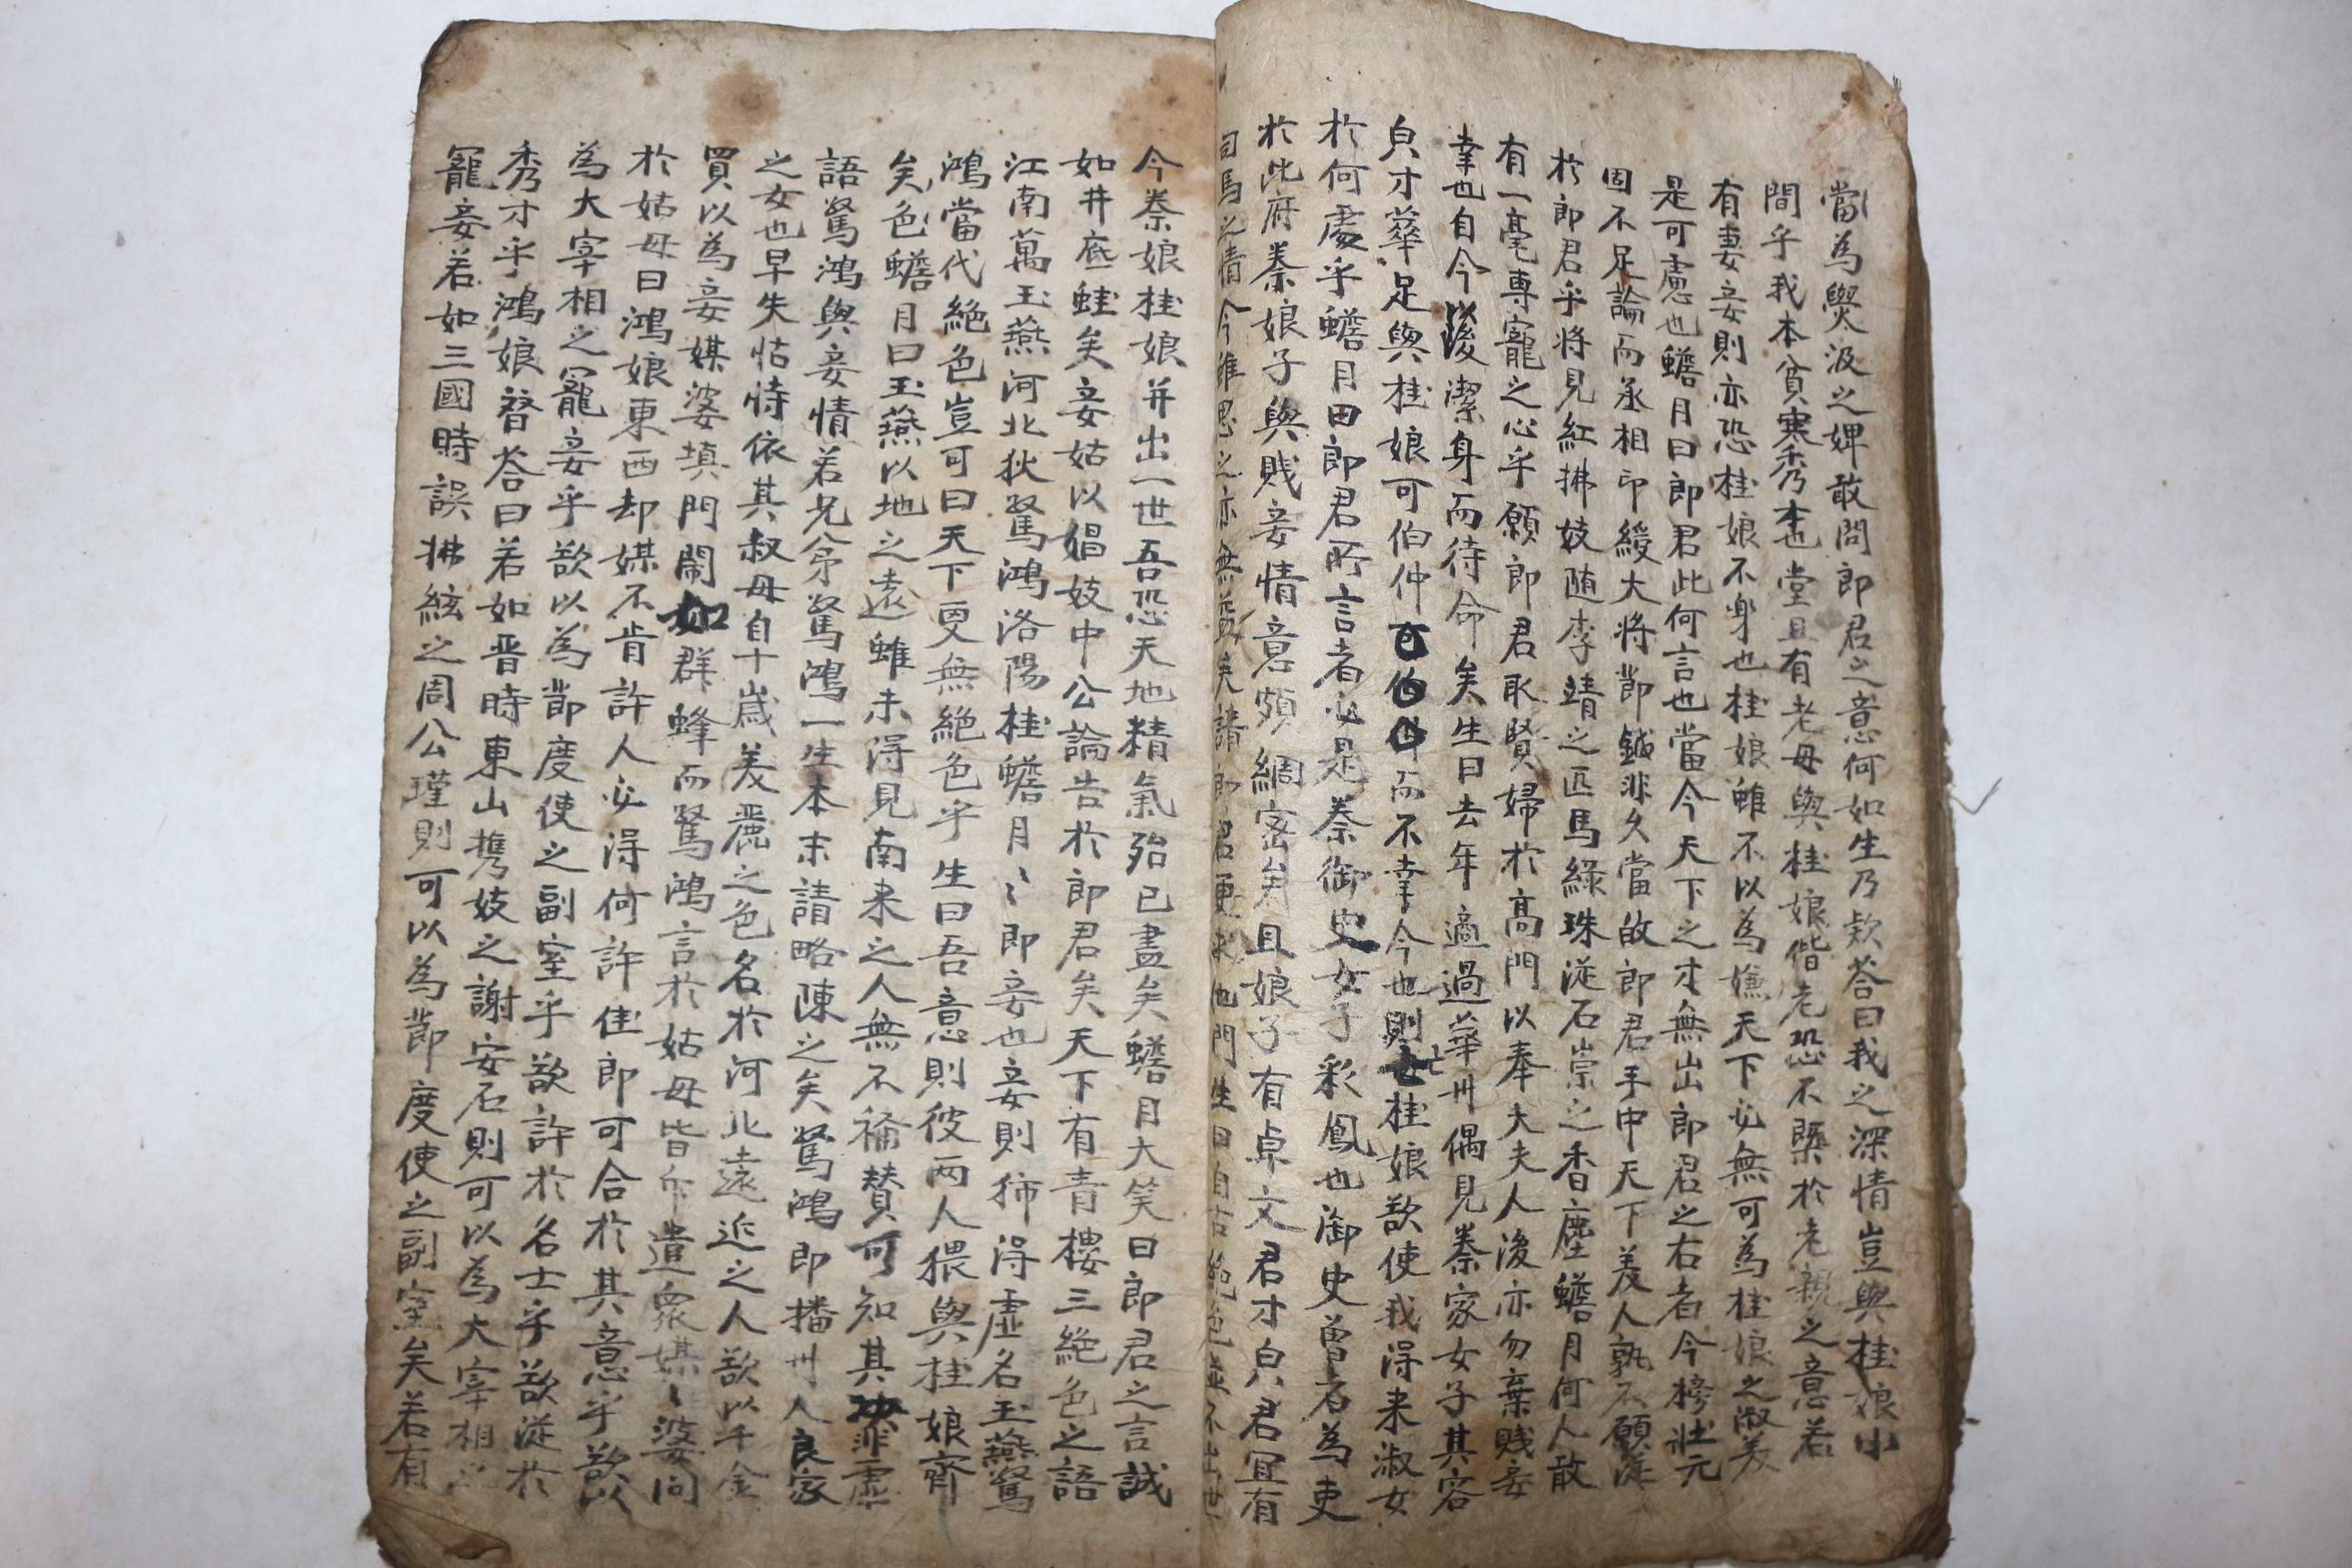 當爲爨汲之婢敢問郎君之意何如生乃欵荅曰我之深情豈與桂娘小
間乎我本貧寒秀才也堂且有老母與桂娘偕老恐不槩於老親之意若
有妻妾則亦恐桂娘不身也桂娘雖不以爲嫌天下必無可爲桂娘之淑美
是可慮也蟾月曰郎君此何言也當今天下之才無出郎君之右者今榜壯元
固不足論而丞相印綬大將節鉞非久當故郎君手中天下美人孰不願從
於郎君乎將見紅拂妓随李靖之匹馬綠珠從石崇之香塵蟾月何人敢
有一毫專寵之心乎願郎君取賢婦於高門以奉大夫人後亦勿棄賤妾
幸也自今以後潔身而待命矣生曰去年適過華州偶見秦家女子其容
皃才華足與桂娘可伯仲而不幸今也則亡桂娘欲使我得来淑女
於何處乎蟾月曰郎君所言者必是秦御史女子彩鳳也御史曾者爲吏
於此府秦娘子與賤妾情意頗綢密矣且娘子有卓文君才皃君冝有
司馬之情今雖思之亦無益矣請郎君更求他門生曰自古絶色並不出世
今秦娘桂娘并出一世吾恐天地精氣殆已盡矣蟾月大笑曰郎君之言誠
如井底蛙矣妾姑以娼妓中公論告於郎君矣天下有青樓三絶色之語
江南萬玉燕河北狄驚鴻洛陽桂蟾月〻即妾也妾則獨得虛名玉燕驚
鴻當代絶色豈可曰天下更無絶色乎生曰吾意則彼兩人猥與桂娘齊
矣色蟾月曰玉燕以地之遠雖未得見南来之人無不稱賛可知其決非虛
語驚鴻與妾情若兄弟驚鴻一生本末請略陳之矣驚鴻即播州人良家
之女也早失怙恃依其叔母自十歲美麗之色名於河北遠近之人欲以千金
買以爲妾媒婆填門鬧如群蜂而驚鴻言於姑母皆斥遣衆媒〻婆问
於姑母曰鴻娘東西却媒不肯許人必得何許佳郎可合於其意乎欲以
爲大宰相之寵妾乎欲以爲節度使之副室乎欲許於名士乎欲從於
秀才乎鴻娘替荅曰若如晋時東山携妓之謝安石則可以爲大宰相之
寵妾若如三國時誤拂絃之周公瑾則可以爲節度使之副室矣若有